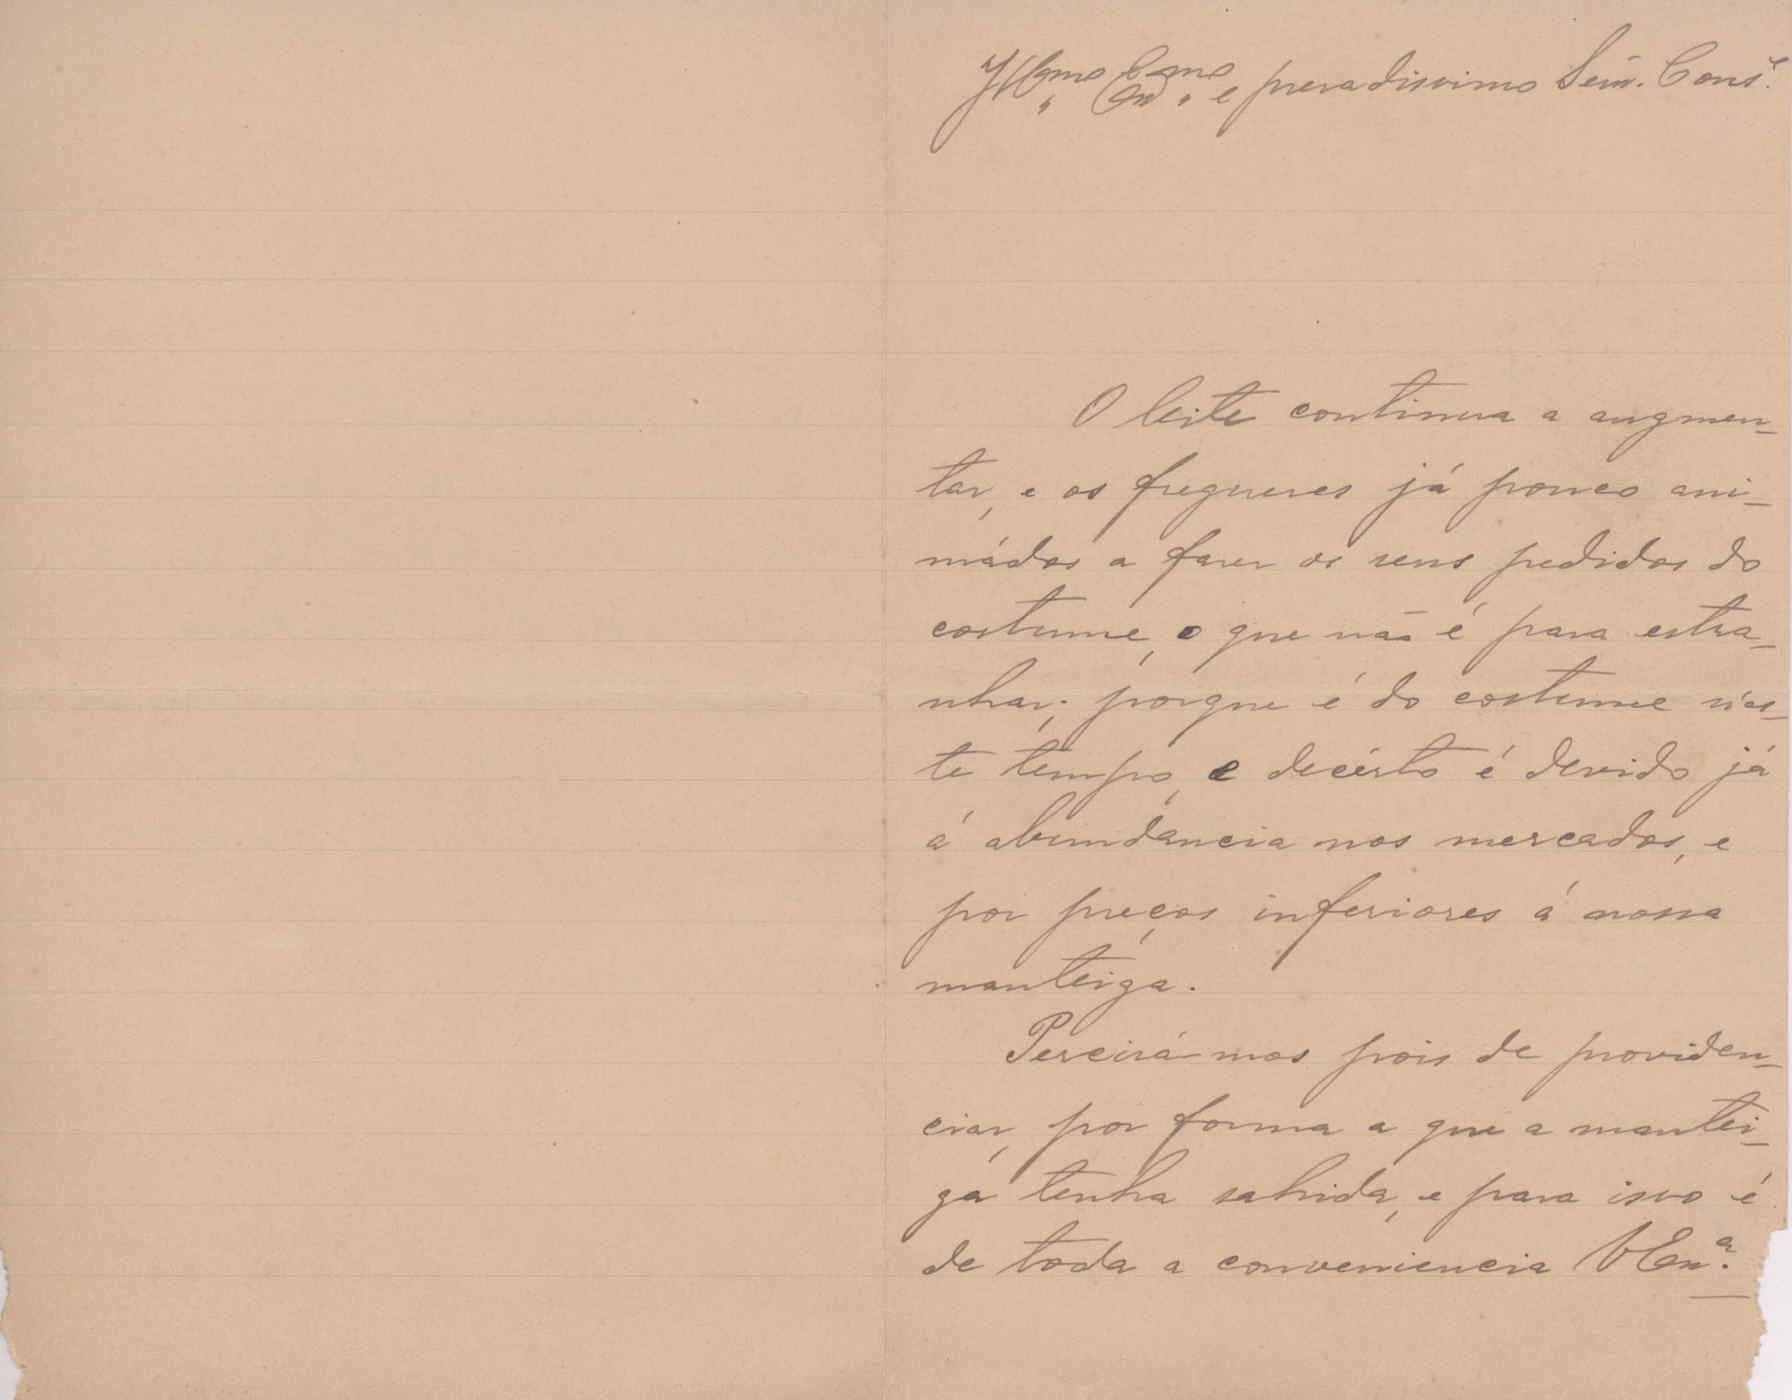 Illmo. Exmo. e presadissimo Senr. Conso.
O leite continua a augmen-
tar, e os freguezes já pouco ani-
mádos a fazer os seus pedidos do
costume, o que não é para estra-
nhar; porque é do costume n'es-
te tempo, e decérto é devido já
á abundancia nos mercados, e
por preços inferiores á nossa
manteiga.
mos pois de providen-
ciar, por forma a que a mantei-
ga tenha sahida, e para isso é
de toda a conveniencia V Exa.